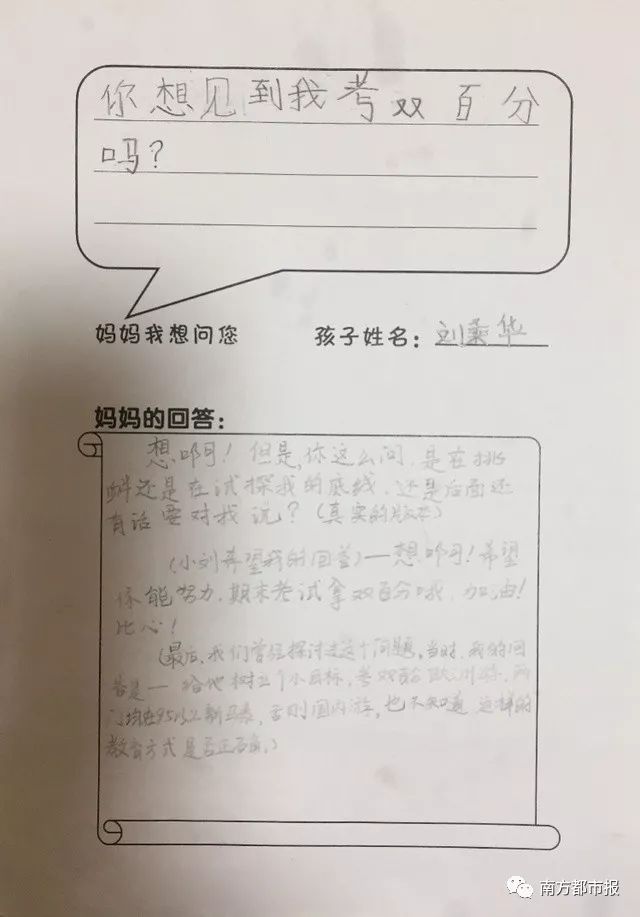 你想见到我考双百分
吗？
妈妈我想问您
孩子姓名：刘乘华
妈妈的回答：
想啊！但是，你这么问，是在挑
衅还是在试探我的底线，还是后面还
有话要对我说？（真实的版本）
（小刘希望我的回答）—想啊！希望
你能努力，期末考试拿双百分哦，加油！
比心！
（最后，我们曾经探讨过这个问题，当时，我的回
答是—给他树立个小目标，考双百分欧洲游，两
门均在95以上新马泰，否则国内游，也不知道，这样的
教育方式是否正确。）
南方都市报